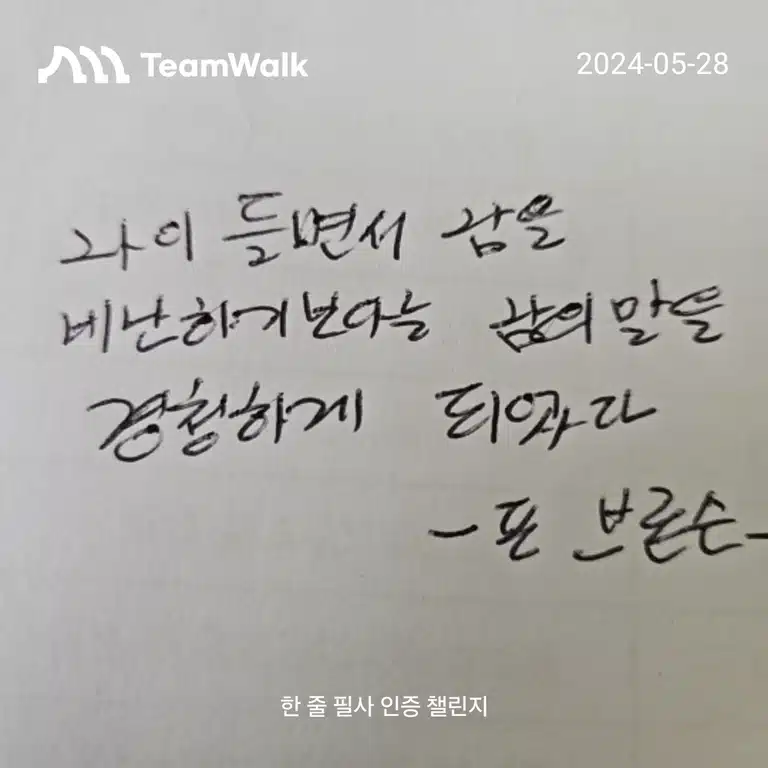 TeamWalk
2024-05-28
나이 들면서 남을
비난하기보다는 남의 말을
경청하게 되었다
- 포 브론슨 -
한 줄 필사 인증 챌린지